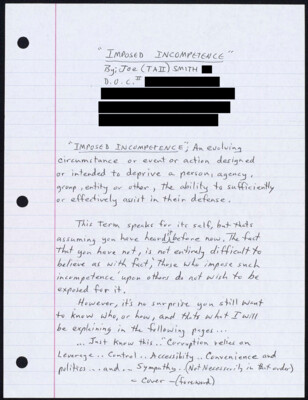 "IMPOSED INCOMPETENCE"
By; Joe (TAJJ) SMITH
D.O.C. #
"IMPOSED INCOMPETENCE"; An evolving
circumstance or event or action designed
or intended to deprive a person, agency,
group, entity or other, the ability to sufficiently
or effectively assist in their defense.
This Term speaks for its self, but thats
assuming you have heard before now. The fact
that you have not, is not entirely difficult to
believe as with fact; Those who impose such
incompetence upon others do not wish to be
exposed for it.
However, it's no surprise you still want
to know who, or how, and thats what I will
be explaining in the following pages...
... Just know this.. "Corruption relies on
Leverage.. Control.. Accessibility.. Convenience and
politics... and.. - Sympathy. (Not Necessarily in that order)
- Cover - (foreword)